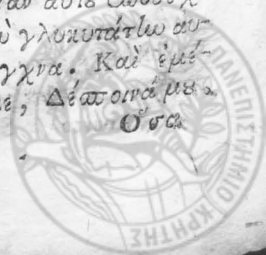 ὺ γλυκυτάτω αυ-
γχνα. Καὶ ἐμέ-
ε, Δέσποινά μου.
Ὅσα
ΠΑΝΕΠΙΣΤΗΜΙΟ ΚΡΗΤΗΣ